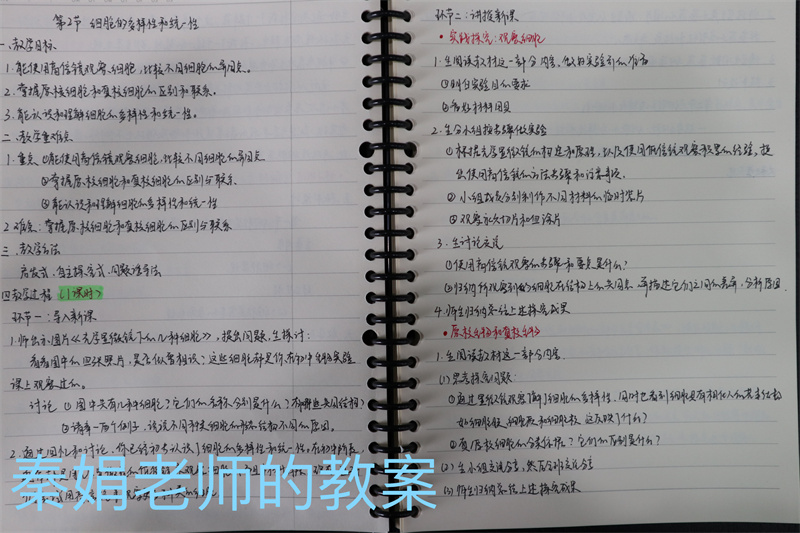 第2节 细胞的多样性和统一性
一.教学目标
1.能使用高倍镜观察细胞,比较不同细胞的异同点。
2.掌握原核细胞和真核细胞的区别和联系。
3.能认识和理解细胞的多样性和统一性。
二.教学重难点
1.重点 ①能使用高倍镜观察细胞,比较不同细胞的异同点
②掌握原核细胞和真核细胞的区别与联系
③能认识和理解细胞的多样性和统一性
2.难点:掌握原核细胞和真核细胞的区别与联系
三.教学方法
启发式、自主探究式、问题引导法
四.教学过程 (1课时)
环节一:导入新课
1.师出示图片《光学显微镜下的几种细胞》,提出问题,生探讨:
看看图中的四张照片,是否似曾相识?这些细胞都是你在初中生物实验
课上观察过的。
讨论 ①图中共有几种细胞?它们的名称分别是什么?有哪些共同结构?
②请举一两个例子,谈谈不同种类细胞的形态结构不同的原因。
2.通过图片和讨论,你已经初步认识了细胞的多样性和统一性。在初中所
秦娟老师的教案
环节二:讲授新课
•实践探究:观察细胞
1.生阅读教材这一部分内容,做好实验前的准备
①明白实验目的要求
②
2.生分小组按步骤做实验
①根据光学显微镜的构造和原理,以及使用低倍镜观察效果的经验,提
出使用高倍镜的方法步骤和注意事项。
②小组成员分别制作不同材料的临时装片
③观察永久切片和
3.生讨论交流
①使用高倍镜观察的步骤和要点是什么?
②归纳所观察到的细胞在结构上的共同点 并描述它们之间的差异,分析原因
4.师生归纳总结上述探究成果
•原核细胞和真核细胞
1.生阅读教材这一部分内容.
(1)思考探究问题:
①通过显微镜观察了解了细胞的多样性,同时也看到细胞具有相似的基本结构
如细胞膜、细胞质和细胞核 这反映了什么?
②真/原核细胞的分类依据?它们的区别是什么?
(2)生小组交流答案,然后全班交流答案
(3)师生归纳总结上述探究成果